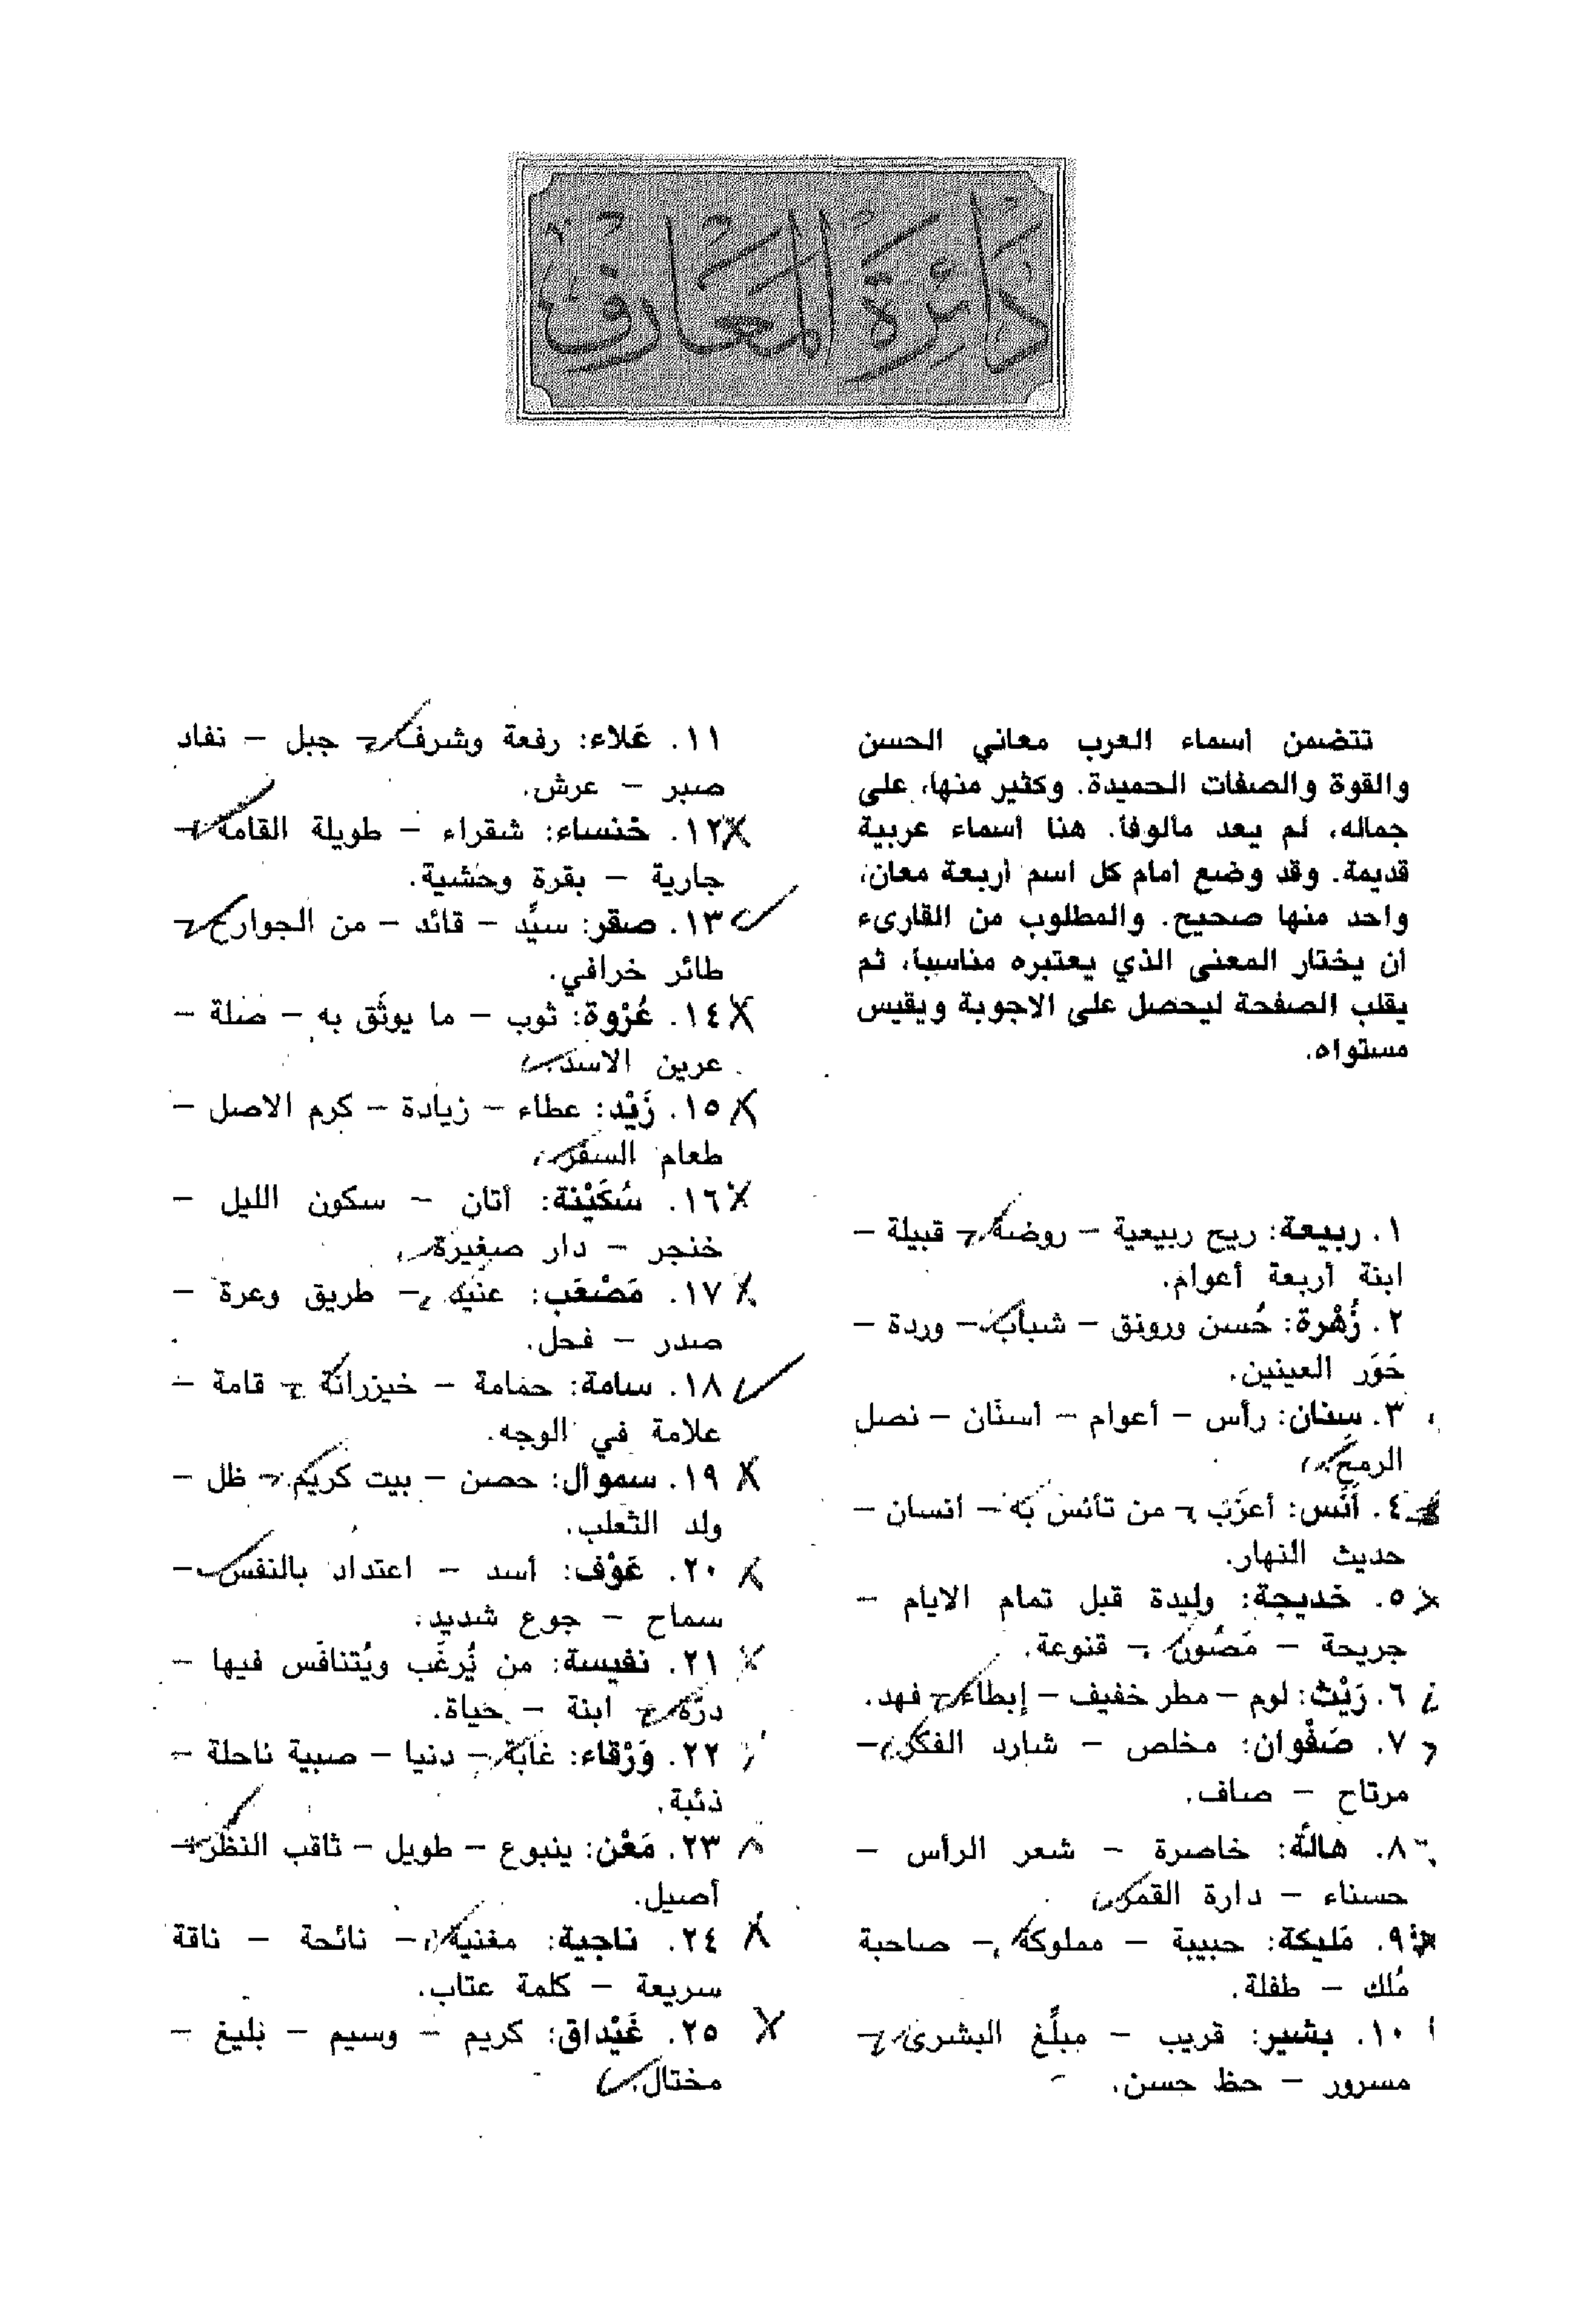 دَائِرَة المَعَارِف
تتضمن اسماء العرب معاني الحسن
والقوة والصفات الحميدة. وكثير منها، على
جماله، لم يعد مألوفاً. هنا أسماء عربية
قديمة. وقد وضع امام كل اسم أربعة معان،
واحد منها صحيح. والمطلوب من القارىء
أن يختار المعنى الذي يعتبره مناسباً، ثم
يقلب الصفحة ليحصل على الاجوبة ويقيس
مستواه.
١. ربيعة: ريح ربيعية – روضة – قبيلة –
ابنة أربعة أعوام.
٢. زُهْرة: حُسن ورونق – شباب – وردة –
حَوَر العينين.
٣. سِنان: رأس – أعوام – أسنّان – نصل
الرمح.
٤. أَنَس: أعزَب – من تأنس به – انسان –
حديث النهار.
٥. خديجة: وليدة قبل تمام الايام –
جريحة – مَصُون – قنوعة.
٦. رَيْث: لوم – مطر خفيف – إبطاء – فهد.
٧. صَفْوان: مخلص – شارد الفكر –
مرتاح – صاف.
٨. هالَة: خاصرة – شعر الرأس –
حسناء – دارة القمر.
٩. مَليكة: حبيبة – مملوكة – صاحبة
مُلك – طفلة.
١٠. بشير: قريب – مبلِّغ البشرى –
مسرور – حظ حسن.
١١. عَلاء: رفعة وشرف – جبل – نفاد
صبر – عرش.
١٢. خنساء: شقراء – طويلة القامة –
جارية – بقرة وحشية.
١٣. صقر: سيِّد – قائد – من الجوارح –
طائر خرافي.
١٤. عُرْوة: ثوب – ما يوثَق به – ضلة –
عرين الاسد.
١٥. زَيْد: عطاء – زيادة – كرم الاصل –
طعام السفر.
١٦. سُكَيْنة: أتان – سكون الليل –
خنجر – دار صغيرة.
١٧. مَصْعَب: عنيد – طريق وعرة –
صدر – فحل.
١٨. سامة: حمامة – خيزرانة – قامة –
علامة في الوجه.
١٩. سموأل: حصن – بيت كريم – ظل –
ولد الثعلب.
٢٠. عَوْف: أسد – اعتداد بالنفس –
سماح – جوع شديد.
٢١. نفيسة: من يُرغَب ويُتنافَس فيها –
درّة – ابنة – حياة.
٢٢. وَرْقاء: غابة – دنيا – صبية ناحلة –
ذئبة.
٢٣. مَعْن: ينبوع – طويل – ثاقب النظر –
أصيل.
٢٤. ناجية: مغنية – نائحة – ناقة
سريعة – كلمة عتاب.
٢٥. غَيْداق: كريم – وسيم – بليغ –
مختال.